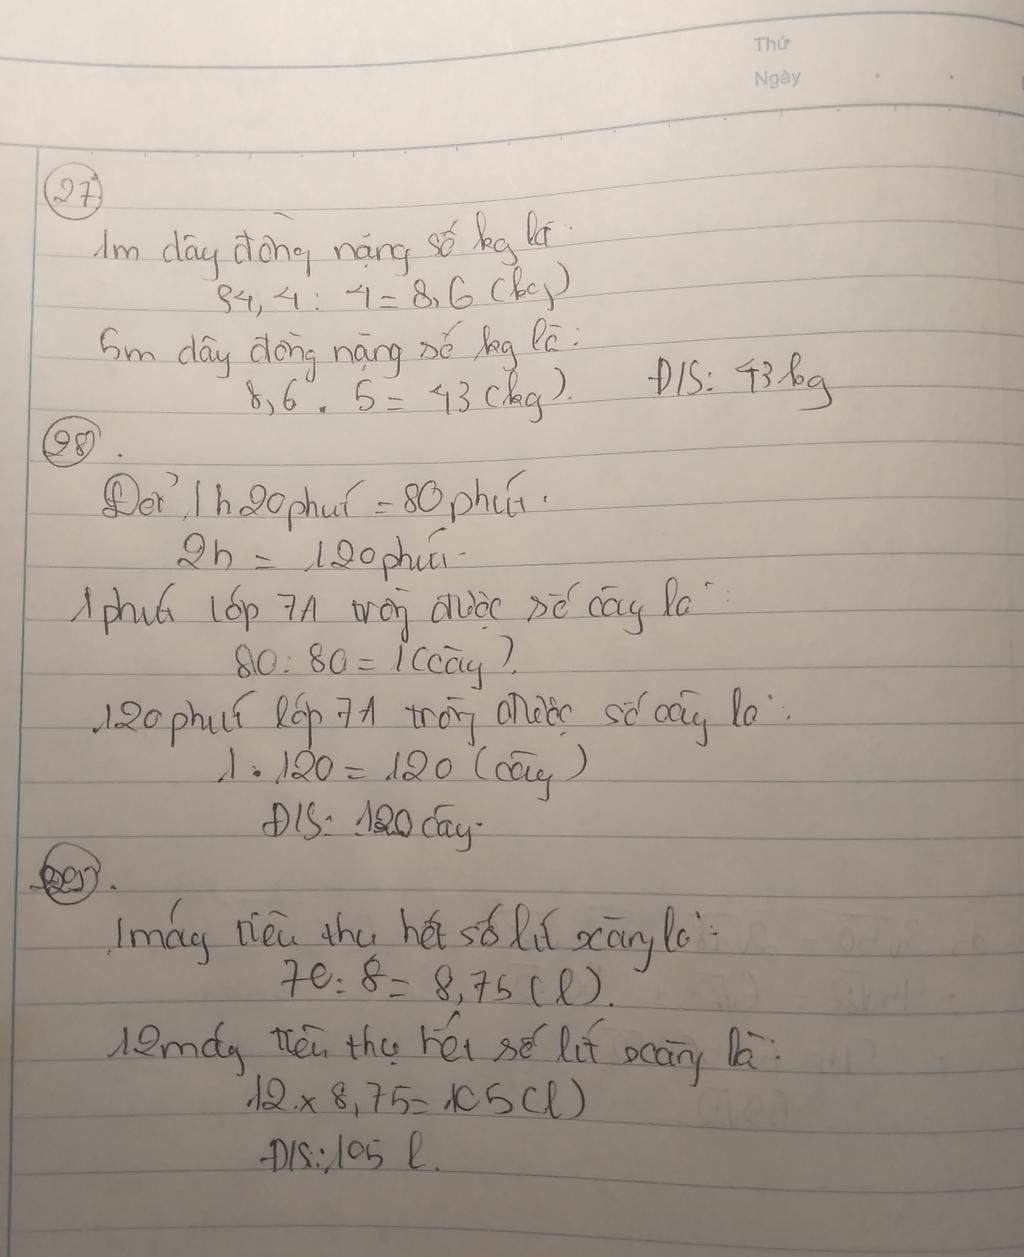 Thứ
Ngày
27
1m dây đồng nặng số kg là
34,4 : 4 = 8,6 (kg)
5m dây đồng nặng số kg là :
8,6 . 5 = 43 (kg). Đ/S: 43 kg
28.
Đổi 1h 20 phút = 80 phút.
2h = 120 phút.
1 phút lớp 7A trồng được số cây là :
80 : 80 = 1 (cây).
120 phút lớp 7A trồng được số cây là :
1 . 120 = 120 (cây)
Đ/S: 120 cây.
29.
1 máy tiêu thụ hết số lít xăng là :
70 : 8 = 8,75 (l).
12 máy tiêu thụ hết số lít xăng là :
12 x 8,75 = 105 (l)
Đ/S: 105 l.